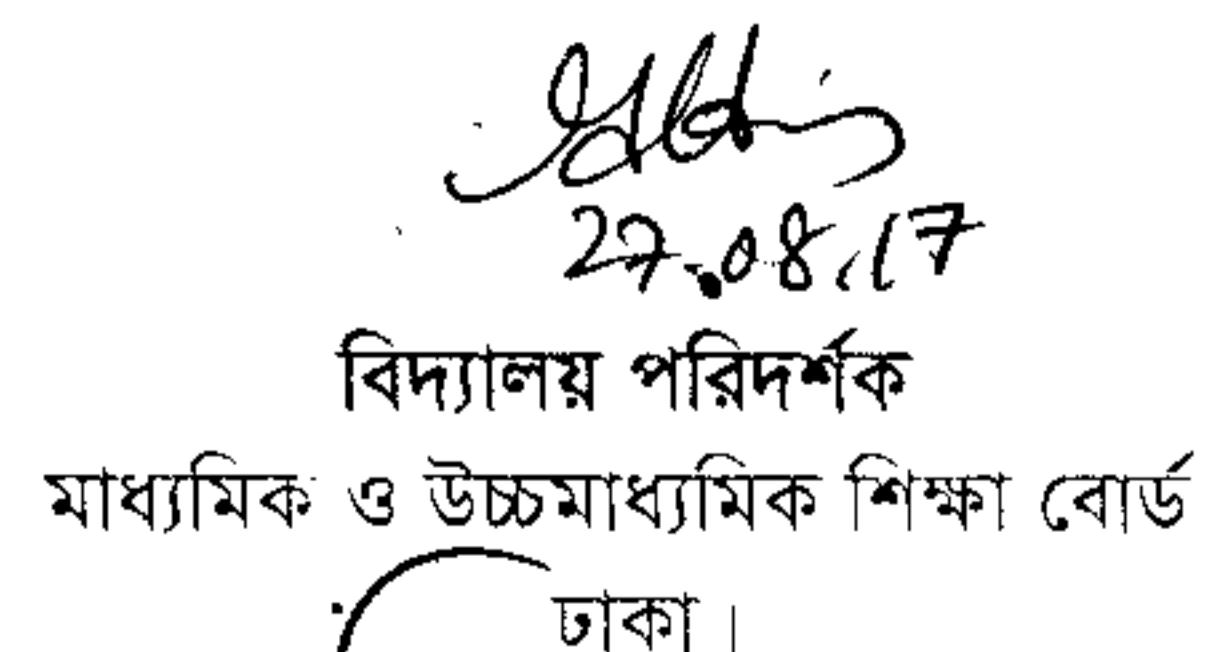 27.08.17
বিদ্যালয় পরিদর্শক
মাধ্যমিক ও উচ্চমাধ্যমিক শিক্ষা বোর্ড
ঢাকা।